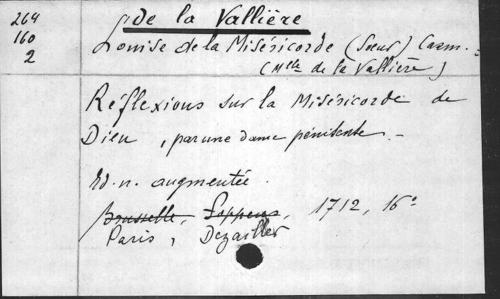 264
160
2
de la Vallière
Louise de la Miséricorde (Sœur) Carm.
(Mlle de la Vallière)
Réflexions sur la Miséricorde de
Dieu, par une dame pénitente. -
Ed. n. augmentée.
Brusselle, Foppens, 1712, 16°
Paris, Dezailler